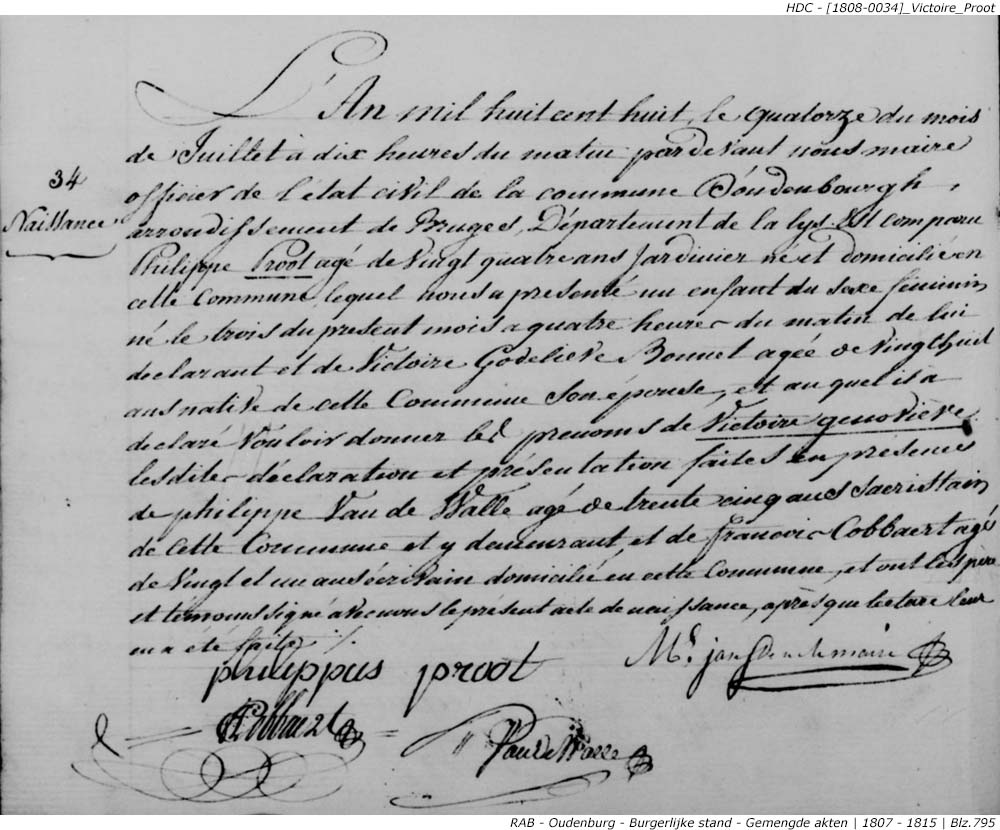 HDC - [1808-0034]_Victoire_Proot
L'An mil huit cent huit, le quatorze du mois
de Juillet à dix heures du matin pardevant nous maire
34
officier de l'état civil de la commune D'oudenbourgh,
Naissance
arrondissement de Bruges, Département de la lys Est comparu
Philippe Proot agé de Vingt quatre ans Jardinier né et domicilié en
cette Commune, lequel nous a présenté un enfant du sexe féminin
né le trois du present mois a quatre heures du matin de lui
declarant et de Victoire Godelieve Bonnet agée de Vingthuit
ans native de cette Commune Son épouse, et au quel il a
declaré Vouloir donner les prenoms de Victoire genovieve
lesdites déclaration et présentation faites en présence
de philippe Van de Walle agé de trente cinq ans Sacristain
de cette Commune et y demeurant, et de francois Cobbaert agé
de Vingt et un ans écrivain domicilié en cette Commune, et ont les père
et temoins signé avec nous le présent acte de naissance, après que lecture leur
en a été faite /.
philippus proot
maire
Cobbaert
VandeWalle
RAB - Oudenburg - Burgerlijke stand - Gemengde akten | 1807 - 1815 | Blz.795